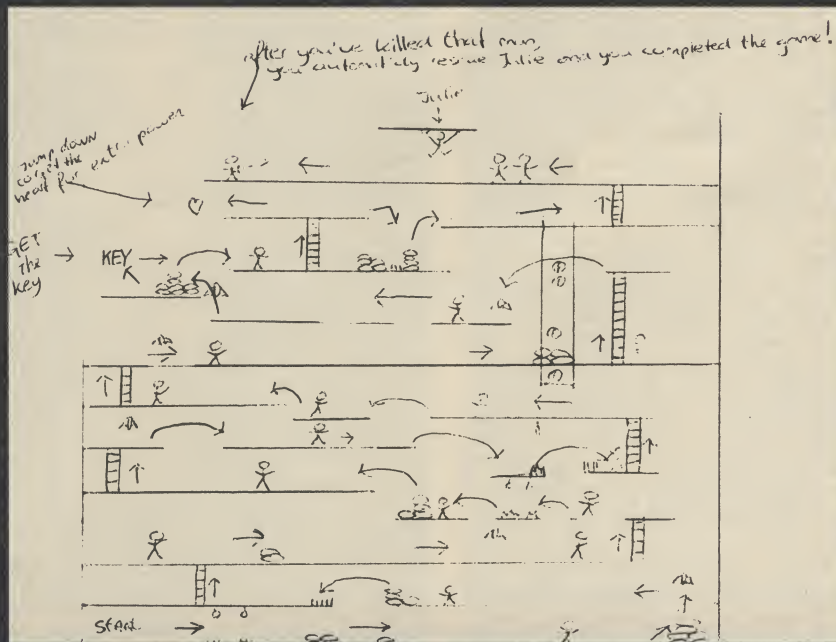 after you've killed that man,
you automaticly rescue Julie and you completed the game!
Julie
Jump down
to get the
heart for extra power
GET
the
key
KEY
START